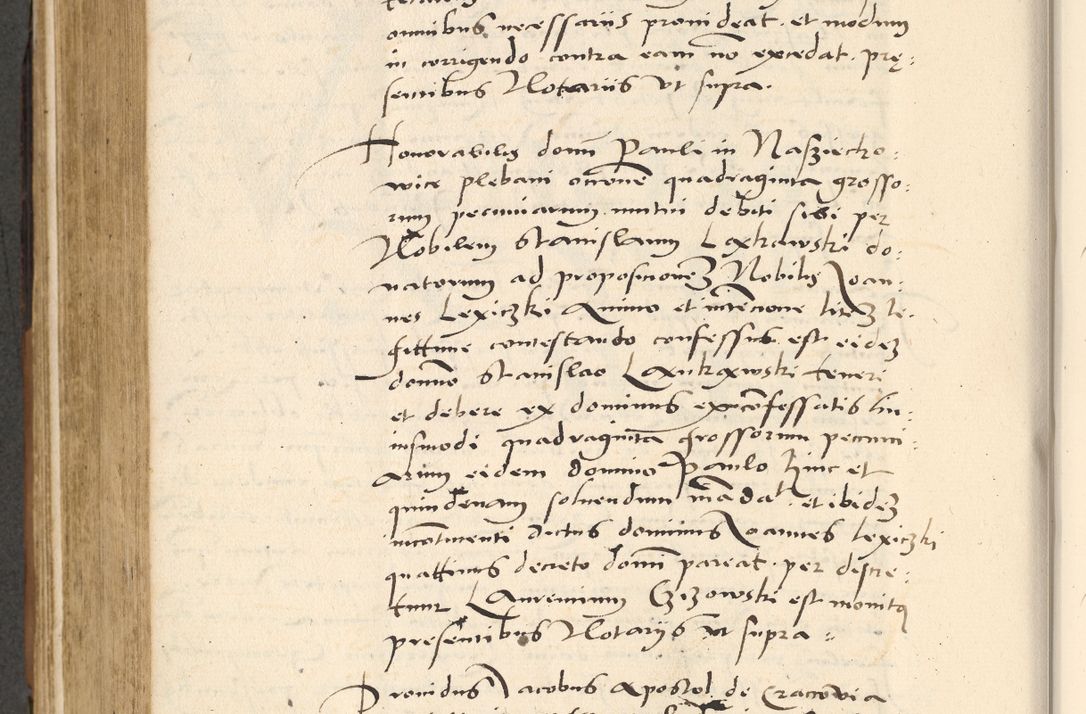 omnibus necessariis provideat et modum
in corrigendo contra eam nō excedat. prę,
sentibus Notariis ut supra.
Honorabilis domī Pauli in Nasziecho,
wice plebani occōne quadraginta grosso,
rum pecuniarum mutui debiti sibi per
Nobilem Stanislaum Lexkowski do,
natorum ad propositionem Nobilis Joan,
nes Lexiczki Animo et intēcione litem le,
gittime contestando confessus est eidem
domno Stanislao Lankawski teneri
et debere ex dominus confessatis hu,
iusmodi quadraginta grossorum pecuni,
arum eidem domino Paulo hinc et
quindenam solvendum mādat et ibidem
incōtinenti dictus dominus Joannes Lexiczki
quattinus decreto domī pareat per discre,
tum Laurencium est monitus
presentibus Notariis ut supra
Providus Jacobus Apostol de Cracovia